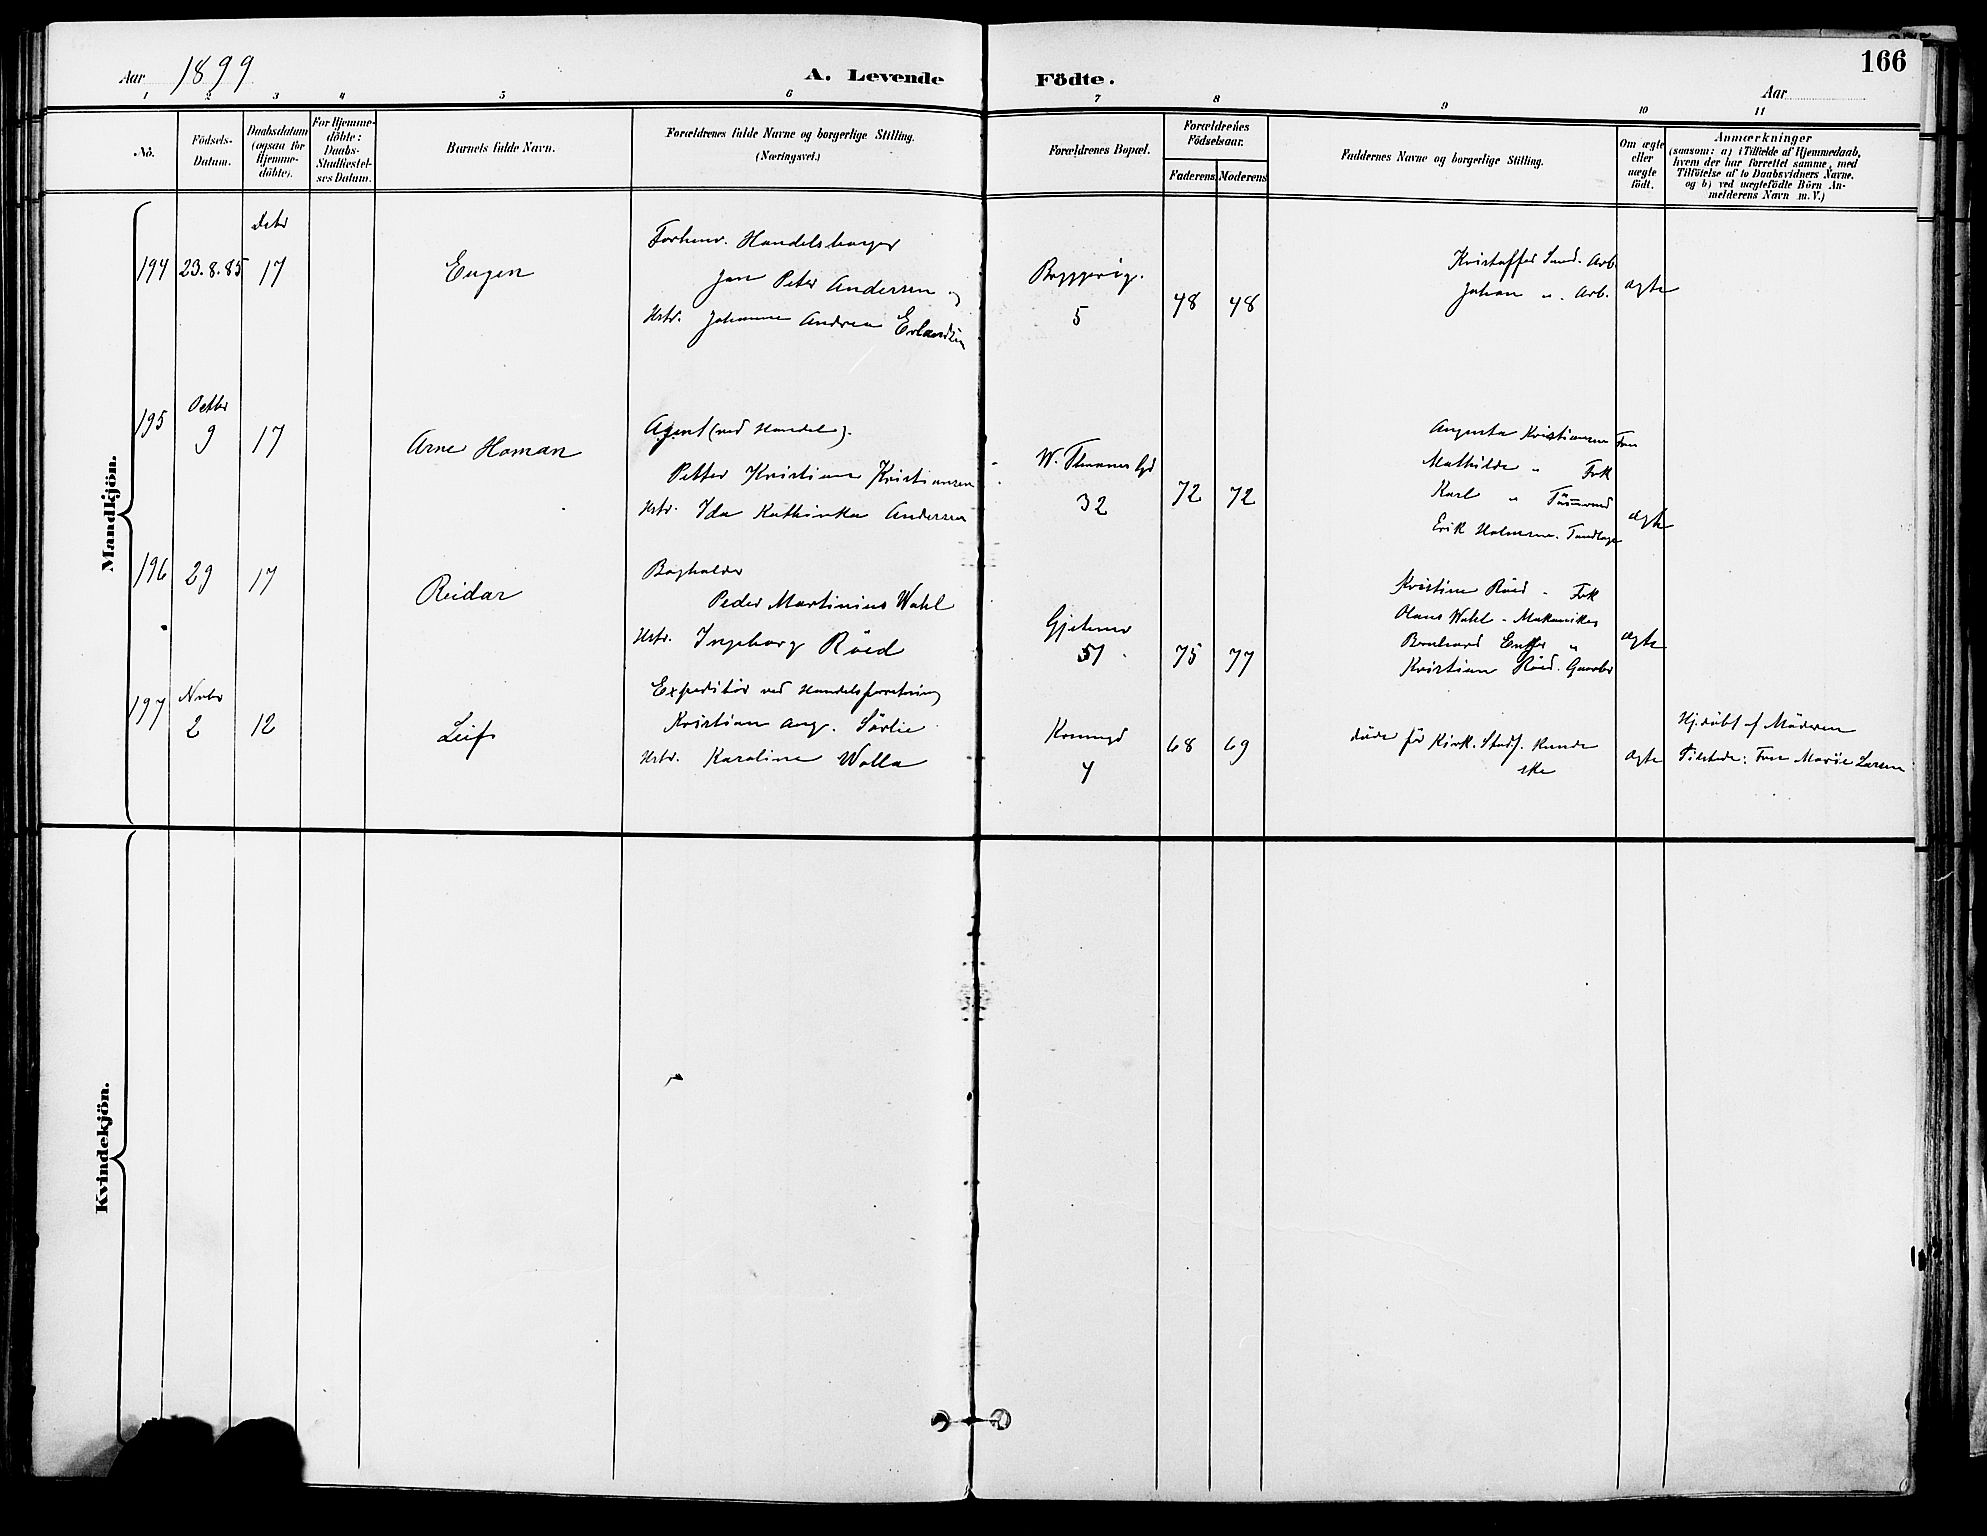 Aar 1899
A. Levende Födte.
166
Aar
1 2 3 4 5 6 7 8 9 10 11
No.
Födsels-Datum.
Daabsdatum (ogsaa for Hjemme-döbte).
For Hjemme-döbte: Daabs-Stadfæstel-ses Datum.
Barnets fulde Navn.
Forældrenes fulde Navne og borgerlige Stilling. (Næringsvei.)
Forældrenes Bopæl.
Forældrenes Födselsaar.
Faderens. Moderens.
Faddernes Navne og borgerlige Stilling.
Om ægte eller uægte födt.
Anmærkninger
(saasom: a) i Tilfælde af Hjemmedaab,
hvem der har forrettet samme, med
Tilföielse af to Daabsvidners Navne.
og b) ved uægtefödte Börn An-
melderens Navn m. V.)
Mandkjön.
194 23.8.85 Debr 17
Eugen
Forhenv. Handelsborger
Jan Peter Andersen og
Hstr. Johanne Andrea Erlandsen
5
48 48
Kristoffer Sund. Arb.
Johan " . Arb.
ægte
195 Octbr 9 17
Arne Homan
Agent (ved Handel).
Petter Kristian Kristiansen
Hstr. Ida Kathinka Andersen
32
72 72
Augusta Kristiansen Fru
Mathilde " Frk
Karl " Tömmermd
Erik Holmsen. Tandlæge
ægte
196 29 17
Reidar
Bogholder
Peder Martinius Wahl
Hstr. Ingeborg Röed
51
75 77
Kristine Röed - Frk
Olaus Wahl - Mekaniker
Bernhard "
Kristian Röed. Garver
ægte
197 Nvbr 2 12
Leif
Expeditör ved Handelsforretning
Kristian Aug. Sörlie
Hstr. Karoline Wolla
4
68 69
döde för Kirk. Stadf. kunde
ske
ægte
Hj.döbt af Möderen
Tilstede: Fru Marie Larsen
Kvindekjön.